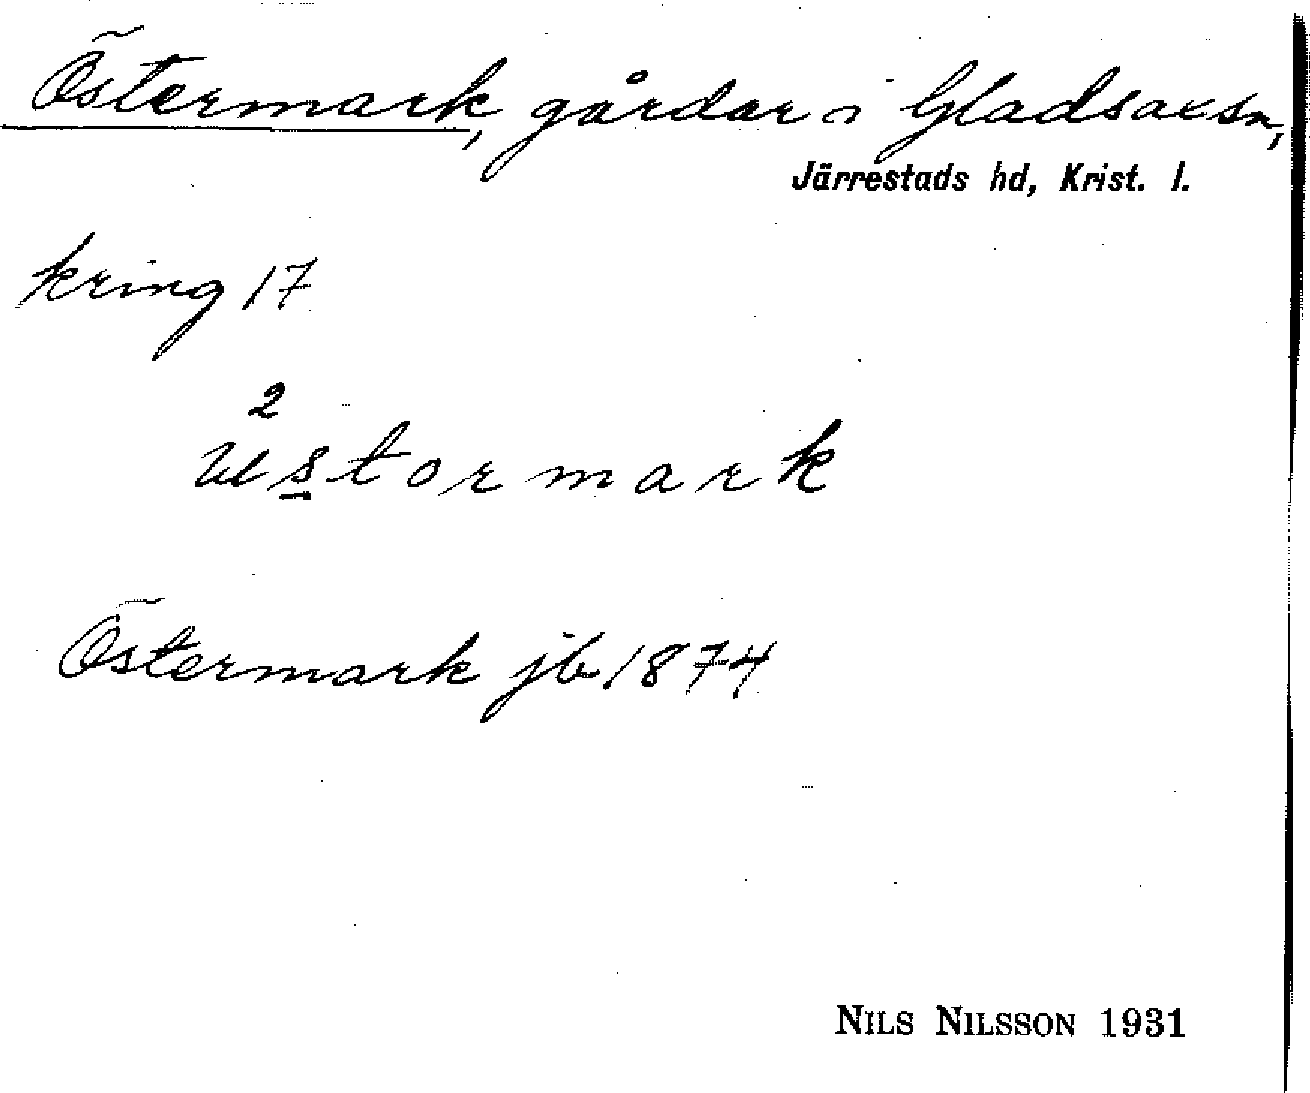 Östermark, gårdar i Gladsax sn,
Järrestads hd, Krist. l.
kring 17
2
östormark
Östermark jb 1874
NILS NILSSON 1931